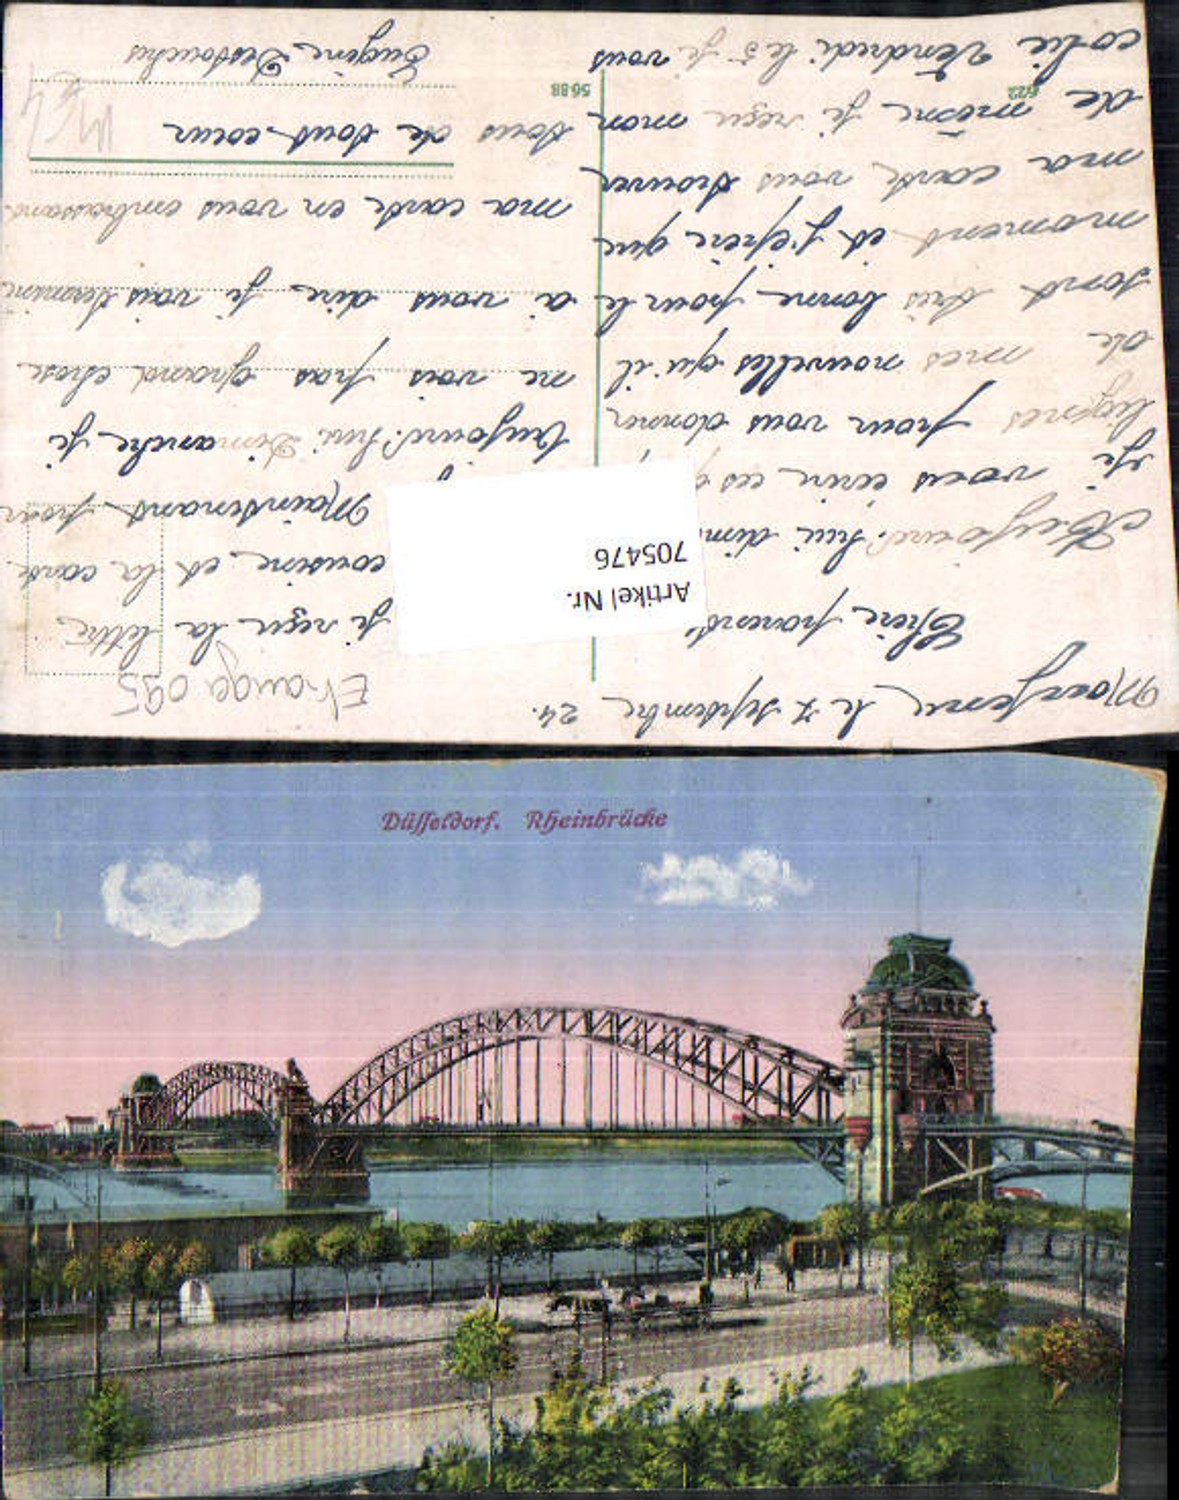 le 7 septembre 24.
Chère
Aujourd'hui
je vous écris ces
lignes pour vous donner
de mes nouvelles qu'il
sont très bonne pour le
moment et j'espère que
ma carte vous trouver
de même je reçu mon
colie Vendredi le 5 je vous
Etranger 095
je reçu la lettre
cousine et la carte
Maintenant pour
Aujourd'hui Dimanche je
ne vois pas grand chose
a vous dire je vais terminé
ma carte en vous embrassant
tous de tout coeur
Eugène
622
5688
Artikel Nr.
705476
Düsseldorf. Rheinbrücke